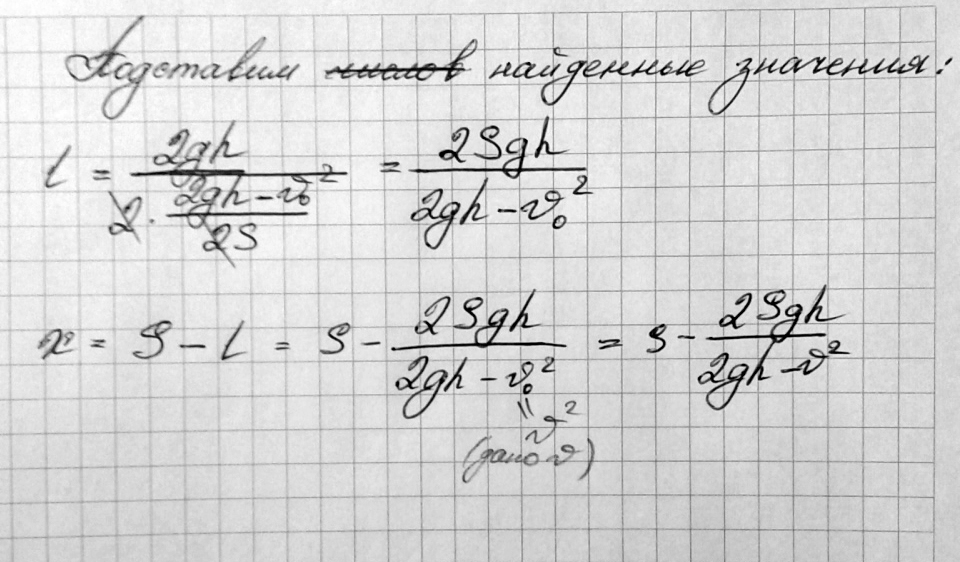 Подставим ~~числов~~ найденные значения:
l = 2gh / (2 · (2gh − v₀²) / 2S) = 2Sgh / (2gh − v₀²)
x = S − l = S − 2Sgh / (2gh − v₀²) = S − 2Sgh / (2gh − v²)
= v²
(дано v)